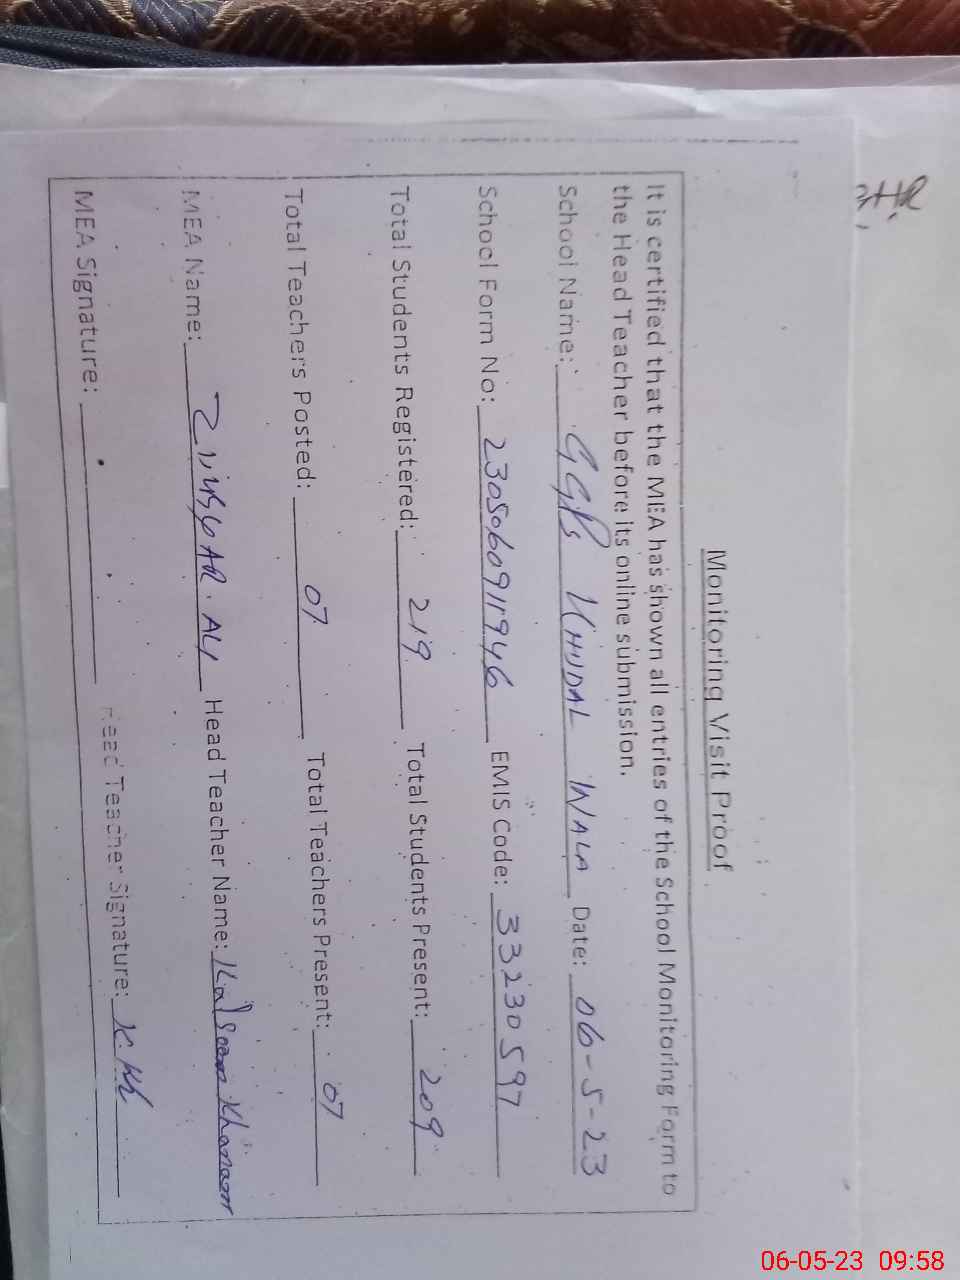 Monitoring Visit Proof
It is certified that the MEA has shown all entries of the School Monitoring Form to
the Head Teacher before its online submission.
School Name: GGPS KHUDAL WALA Date: 06-5-23
School Form No: 2305060911946 EMIS Code: 33230597
Total Students Registered: 219 Total Students Present: 209
Total Teachers Posted: 07 Total Teachers Present: 07
MEA Name: ALI Head Teacher Name: Kalsoom Khanam
MEA Signature: Head Teacher Signature: K.Kh
06-05-23 09:58